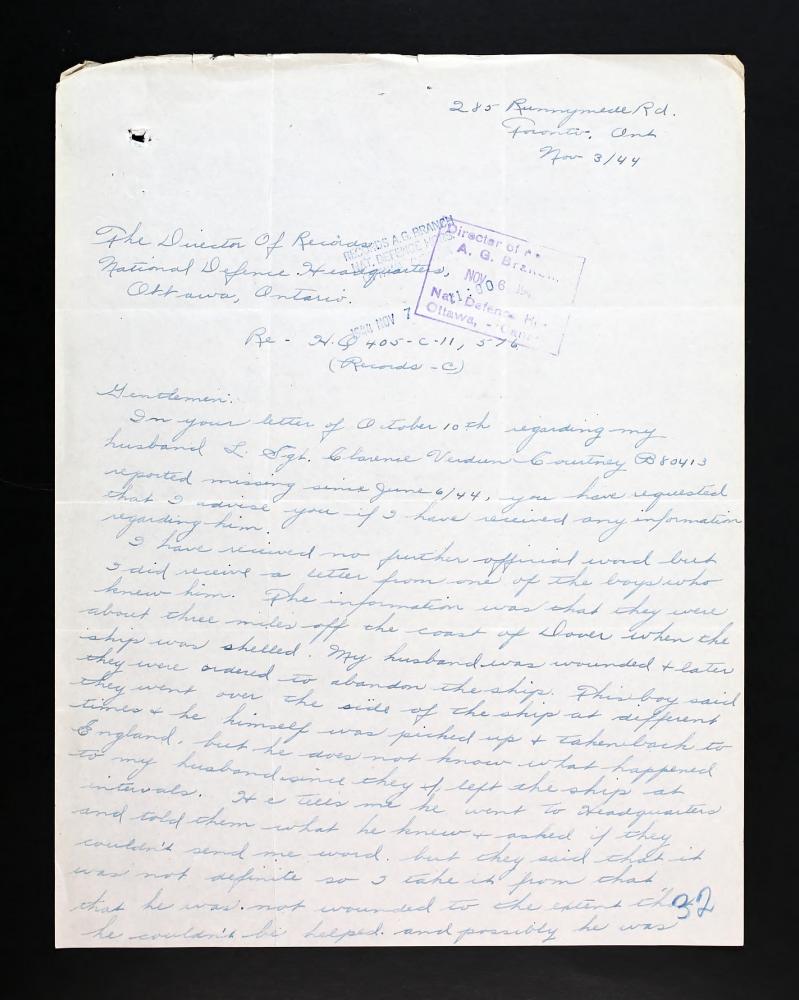 285 Runnymede Rd.
Toronto, Ont
Nov 3/44
The Director Of Records,
National Defence Headquarters,
Ottawa, Ontario.
RECORDS A.G. BRANCH
NAT. DEFENCE
1944 NOV 7
Director of
A. G. Branch
NOV 6
Nat. Defence H.
Ottawa, - Can
Re - H.Q 405-C-11, 576
(Records - C)
Gentlemen:
In your letter of October 10th regarding my
husband L. Sgt. Clarence Verdun Courtney B80413
reported missing since June 6/44, you have requested
that I advise you if I have received any information
regarding him.
I have received no further official word but
I did receive a letter from one of the boys who
knew him. The information was that they were
about three miles off the coast of Dover when the
ship was shelled. My husband was wounded + later
they were ordered to abandon the ship. This boy said
they went over the side of the ship at different
times + he himself was picked up + taken back to
England, but he does not know what happened
to my husband since they left the ship at
intervals. He tells me he went to Headquarters
and told them what he knew + asked if they
couldn't send me word. but they said that it
was not definite so I take it from that
that he was not wounded to the extent that
he couldn't be helped. and possibly he was
32